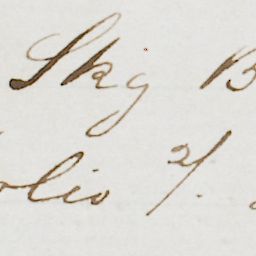 Skg B
olio 2/.